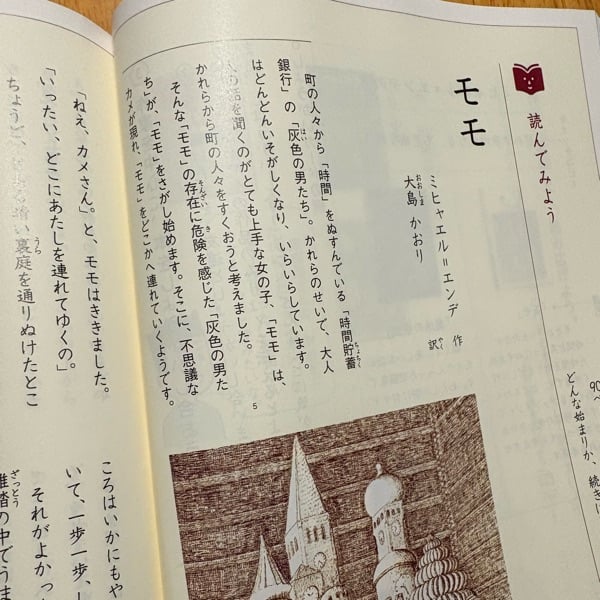 読んでみよう
モモ
ミヒャエル=エンデ 作
大島 かおり 訳
おおしま
やく
町の人々から「時間」をぬすんでいる「時間貯蓄
ちょちく
銀行」の「灰色の男たち」。かれらのせいで、大人
はい
はどんどんいそがしくなり、いらいらしています。
話を聞くのがとても上手な女の子、「モモ」は、
かれらから町の人々をすくおうと考えました。
そんな「モモ」の存在に危険を感じた「灰色の男た
そんざい
き
ち」が、「モモ」をさがし始めます。そこに、不思議な
カメが現れ、「モモ」をどこかへ連れていくようです。
5
「ねえ、カメさん。」と、モモはききました。
「いったい、どこにあたしを連れてゆくの。」
ちょうど、
い裏庭を通りぬけたとこ
うら
ころはいかにもや
いて、一歩一歩、し
それがよかっ
雑踏の中でうま
ざっとう
90ペ
どんな始まりか、続きし